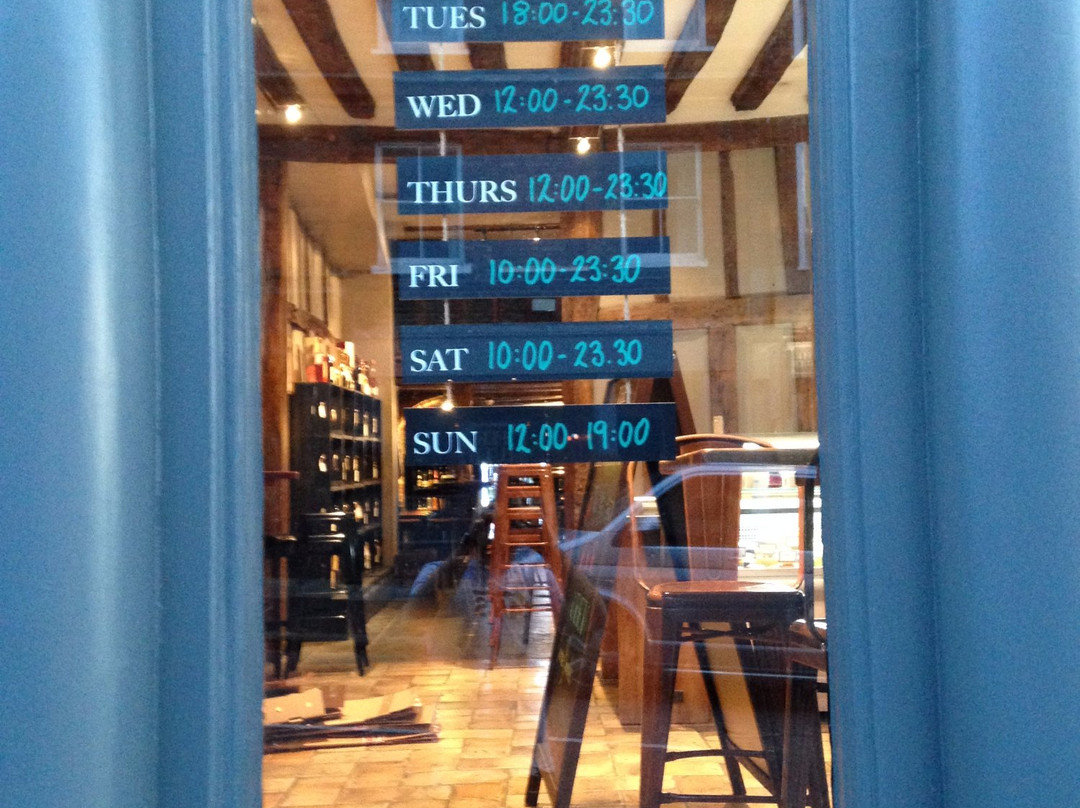 TUES 18:00-23:30
WED 12:00-23:30
THURS 12:00-23:30
FRI 10:00-23:30
SAT 10:00-23.30
SUN 12:00-19:00